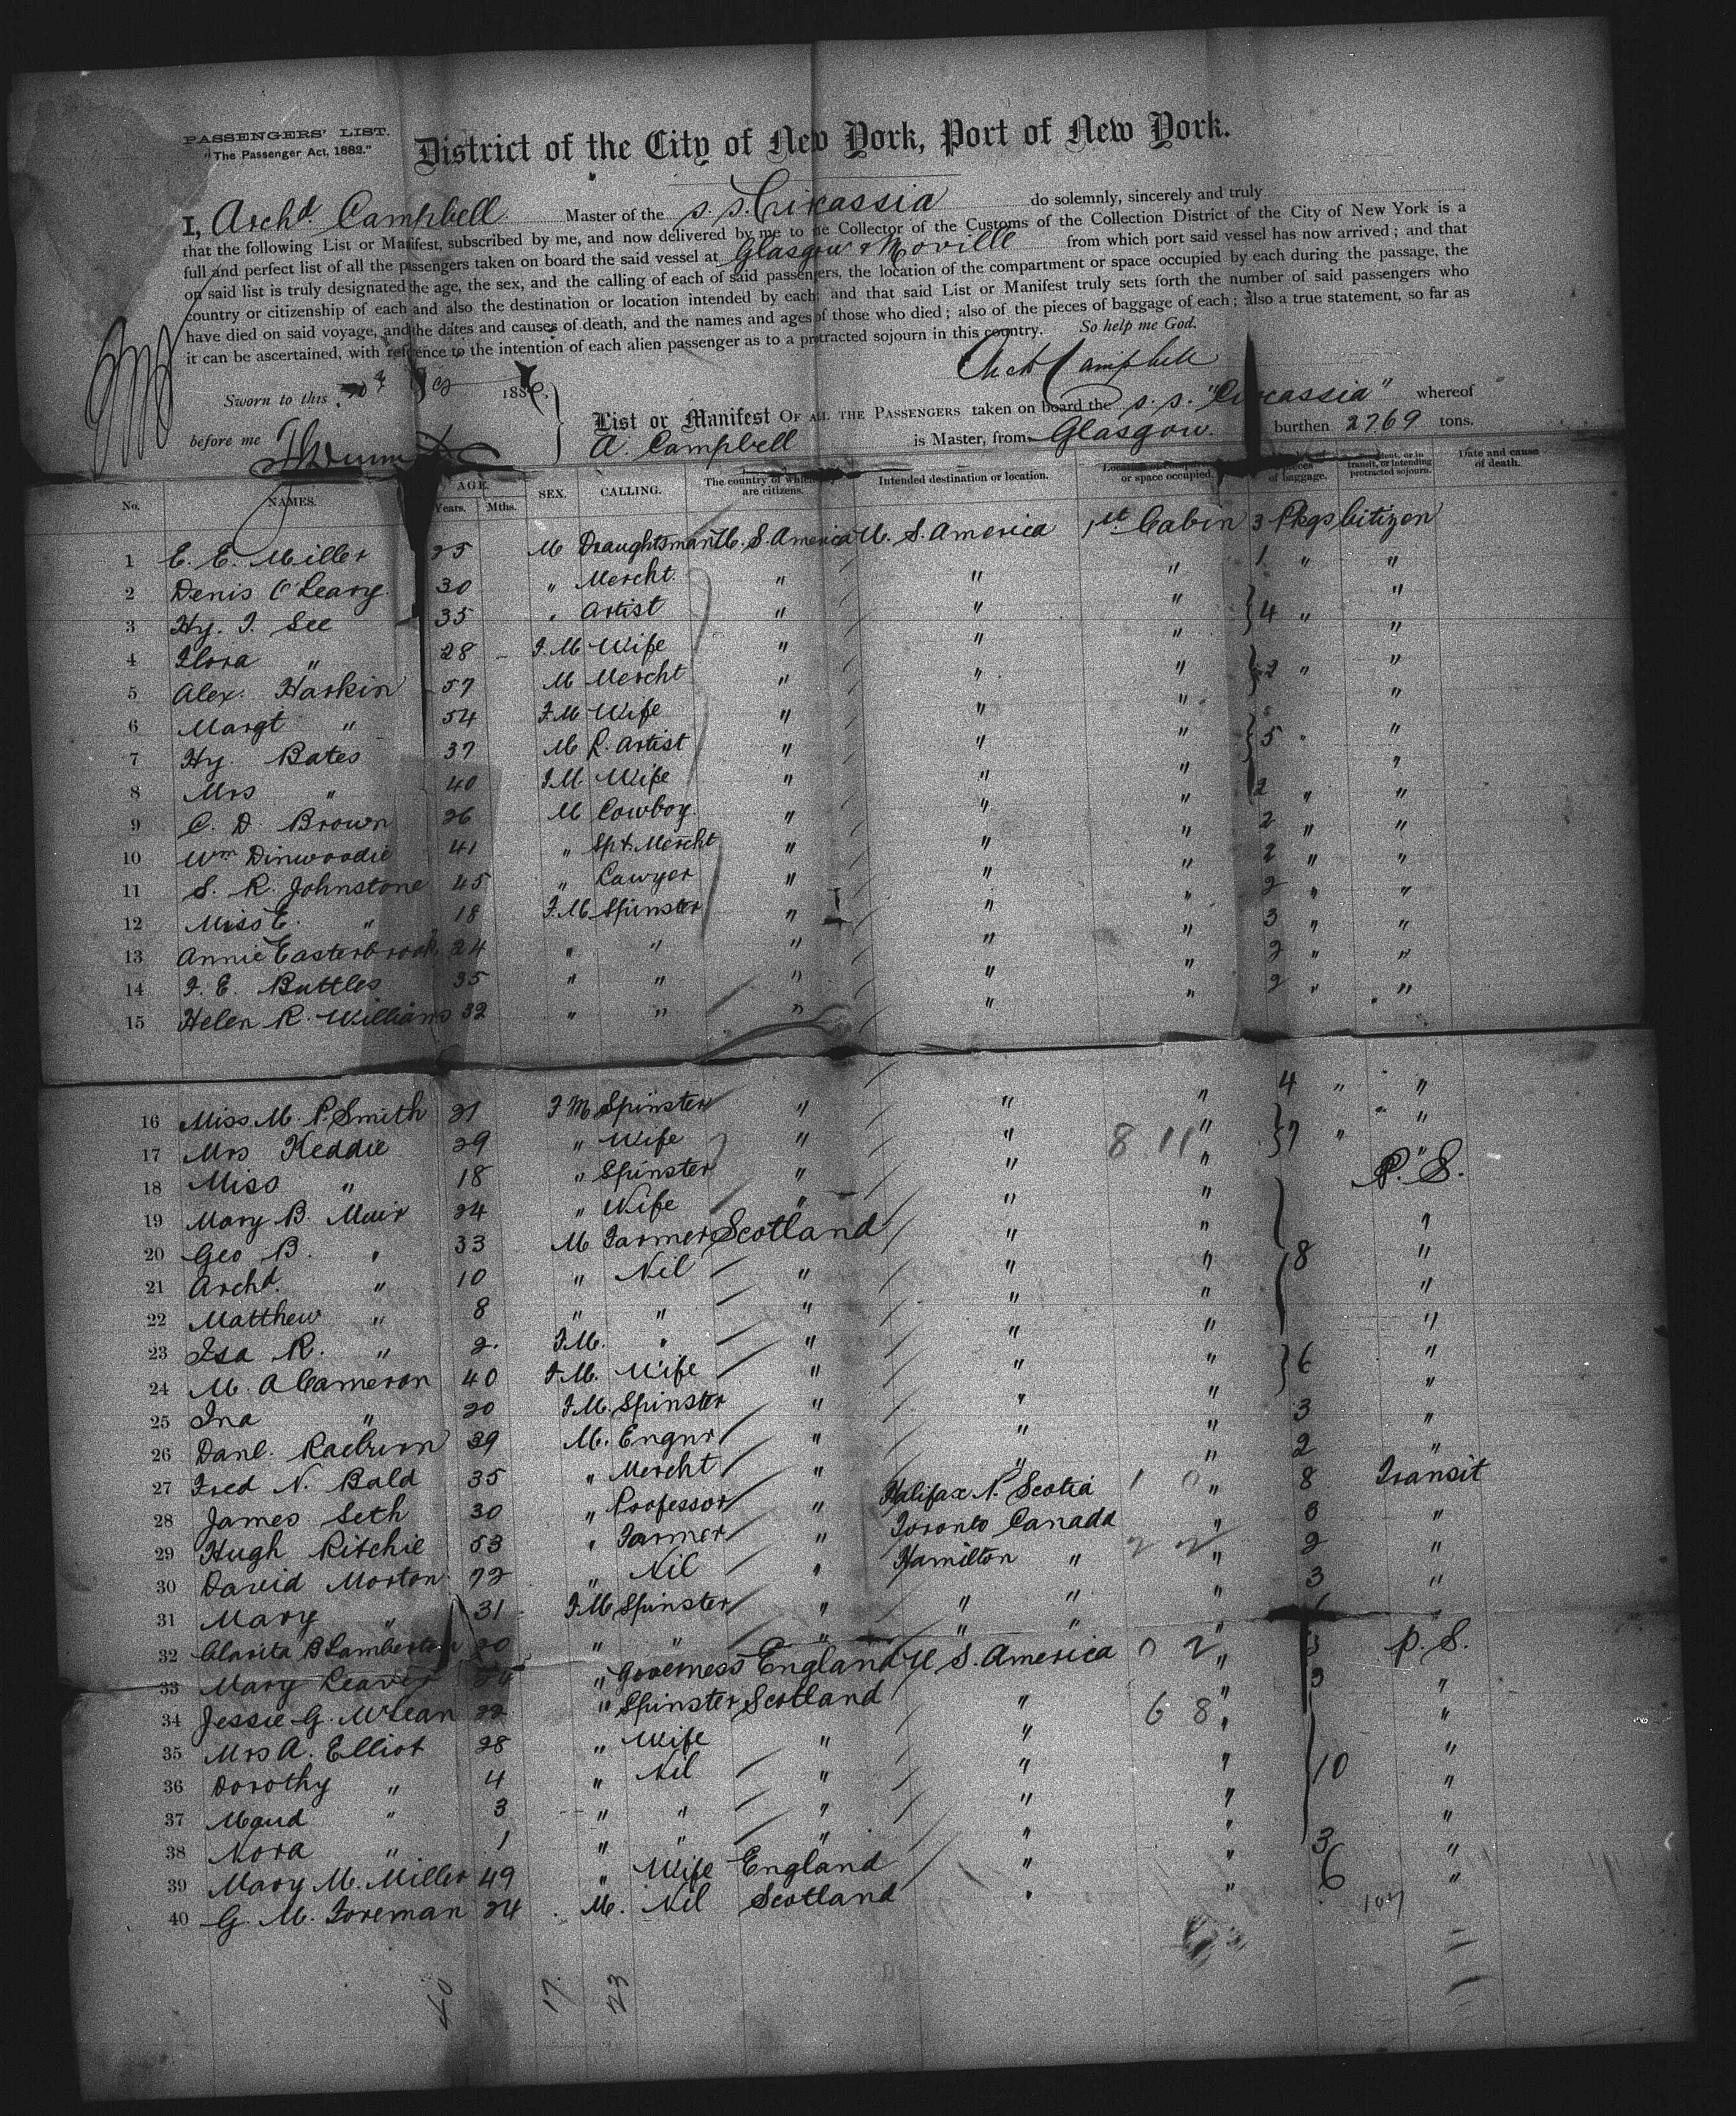 PASSENGERS' LIST.
"The Passenger Act, 1882."
District of the City of New York, Port of New York.
I, Archd. Campbell Master of the s. s. Circassia do solemnly, sincerely and truly
that the following List or Manifest, subscribed by me, and now delivered by me to the Collector of the Customs of the Collection District of the City of New York is a
full and perfect list of all the passengers taken on board the said vessel at Glasgow & Moville from which port said vessel has now arrived; and that
on said list is truly designated the age, the sex, and the calling of each of said passengers, the location of the compartment or space occupied by each during the passage, the
country or citizenship of each and also the destination or location intended by each; and that said List or Manifest truly sets forth the number of said passengers who
have died on said voyage, and the dates and causes of death, and the names and ages of those who died; also of the pieces of baggage of each; also a true statement, so far as
it can be ascertained, with reference to the intention of each alien passenger as to a protracted sojourn in this country. So help me God.
Arch Campbell
Sworn to this 188
before me
List or Manifest OF ALL THE PASSENGERS taken on board the s. s. "Circassia" whereof
A. Campbell is Master, from Glasgow. burthen 2769 tons.
No. NAMES. AGE. Years. Mths. SEX. CALLING. The country of which are citizens. Intended destination or location. Location of compartment or space occupied. pieces of baggage. transit, or intending protracted sojourn. Date and cause of death.
1 E. E. Miller 25 M Draughtsman U. S. America U. S. America 1st Cabin 3 Pkgs Citizen
2 Denis O'Leary 30 " Mercht. " " " 1 " "
3 Hy. I. See 35 " Artist " " " 4 " "
4 Flora " 28 F.M Wife " " " "
5 Alex. Harkin 57 M Mercht " " " 2 " "
6 Margt " 54 F.M Wife " " " "
7 Hy. Bates 37 M P. Artist " " " 5 " "
8 Mrs " 40 F.M Wife " " " "
9 C. D. Brown 26 M Cowboy " " " 2 " "
10 Wm Dinwoodie 41 " Spt. Mercht " " " 2 " "
11 S. R. Johnstone 45 " Lawyer " " " 2 " "
12 Miss E. " 18 F.M Spinster " " " 2 " "
13 Annie Easterbrook 24 " " " " " 3 " "
14 F. E. Buttles 35 " " " " " 2 " "
15 Helen R. Williams 32 " " " " " 2 " "
16 Miss M. P. Smith 21 F M Spinster " " " 4 " "
17 Mrs Keddie 29 " Wife " " 8 11 " 7 " "
18 Miss " 18 " Spinster " " " "
19 Mary B. Muir 24 " Wife " " " P. S.
20 Geo B. " 33 M Farmer Scotland " " "
21 Archd. " 10 " Nil " " " 8 "
22 Matthew " 8 " " " " " "
23 Isa R. " 2 F.M. " " " " "
24 M. A Cameron 40 F.M. Wife " " " 6 "
25 Ina " 20 F.M. Spinster " " " "
26 Danl. Raeburn 39 M. Engnr " " " 3 "
27 Fred N. Bald 35 " Mercht " " " 2 "
28 James Seth 30 " Professor " Halifax N. Scotia 1 0 " 8 Transit
29 Hugh Ritchie 53 " Farmer " Toronto Canada " 3 "
30 David Morton 72 " Nil " Hamilton " 2 2 " 2 "
31 Mary " 31 F.M Spinster " " " " 3 "
32 Clarita B Lamberton 20 " " " " " " "
33 Mary Leaver " Governess England U S. America 0 2 " 3 P. S.
34 Jessie G. McLean 22 " Spinster Scotland " " 3 "
35 Mrs A. Elliot 28 " Wife " " 6 8 " "
36 Dorothy " 4 " Nil " " " 10 "
37 Maud " 3 " " " " " "
38 Nora " 1 " " " " " "
39 Mary M. Miller 49 " Wife England " " 3 "
40 G. M. Foreman 24 M. Nil Scotland " " 6 "
107
40 17 23